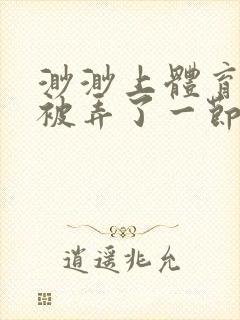 渺渺上體育
被弄了一節
逍遥兆允